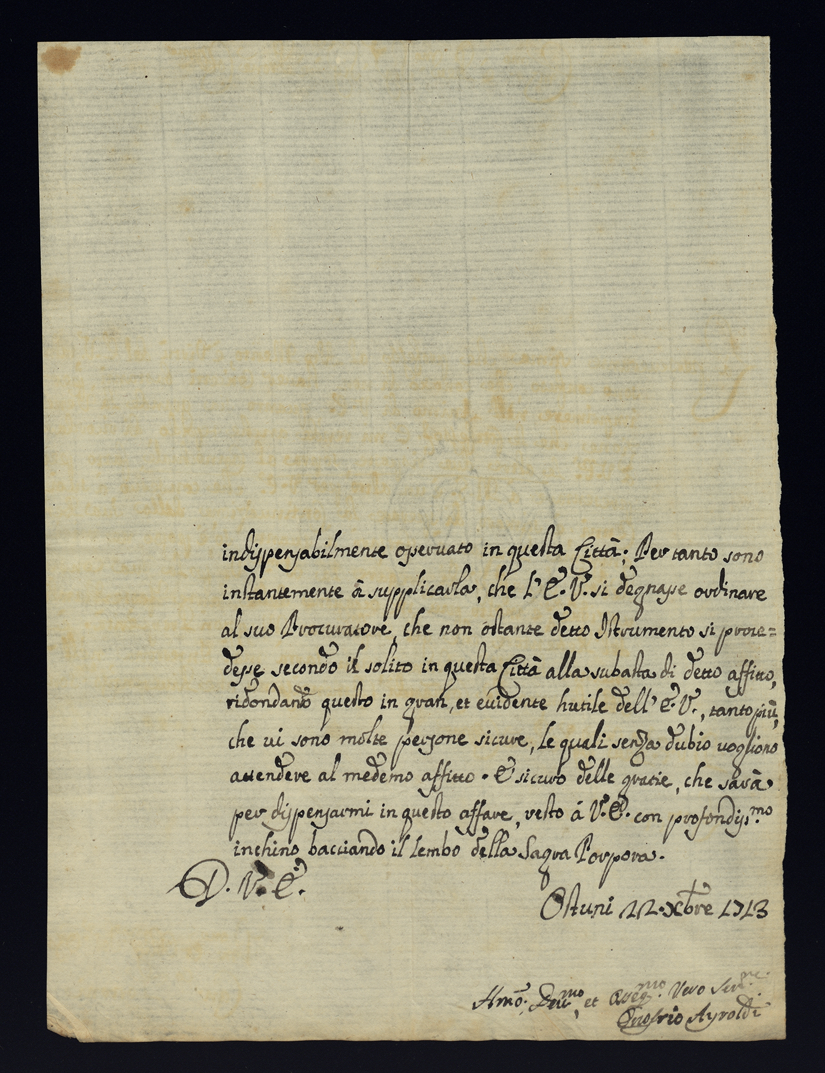 indispensabilmente osservato in questa Città; Per tanto sono
instantemente à supplicarla, che l'E. V. si degnasse ordinare
al suo Procuratore, che non ostante detto Istrumento si proce=
desse secondo il solito in questa Città alla subasta di detto affitto,
ridondando questo in gran, et evidente hutile dell'E. V., tanto più,
che vi sono molte persone sicure, le quali senza dubio vogliono
attendere al medemo affitto. E sicuro delle gratie, che sarà
per dispensarmi in questo affare, resto à V. E. con profondiss.mo
inchino bacciando il lembo della Sagra Porpora.
D. V. E.
Ostuni 22. Xbre 1713
Hmo. Dev.mo, et Obbg.mo Vero Serv.re
Ayroldi